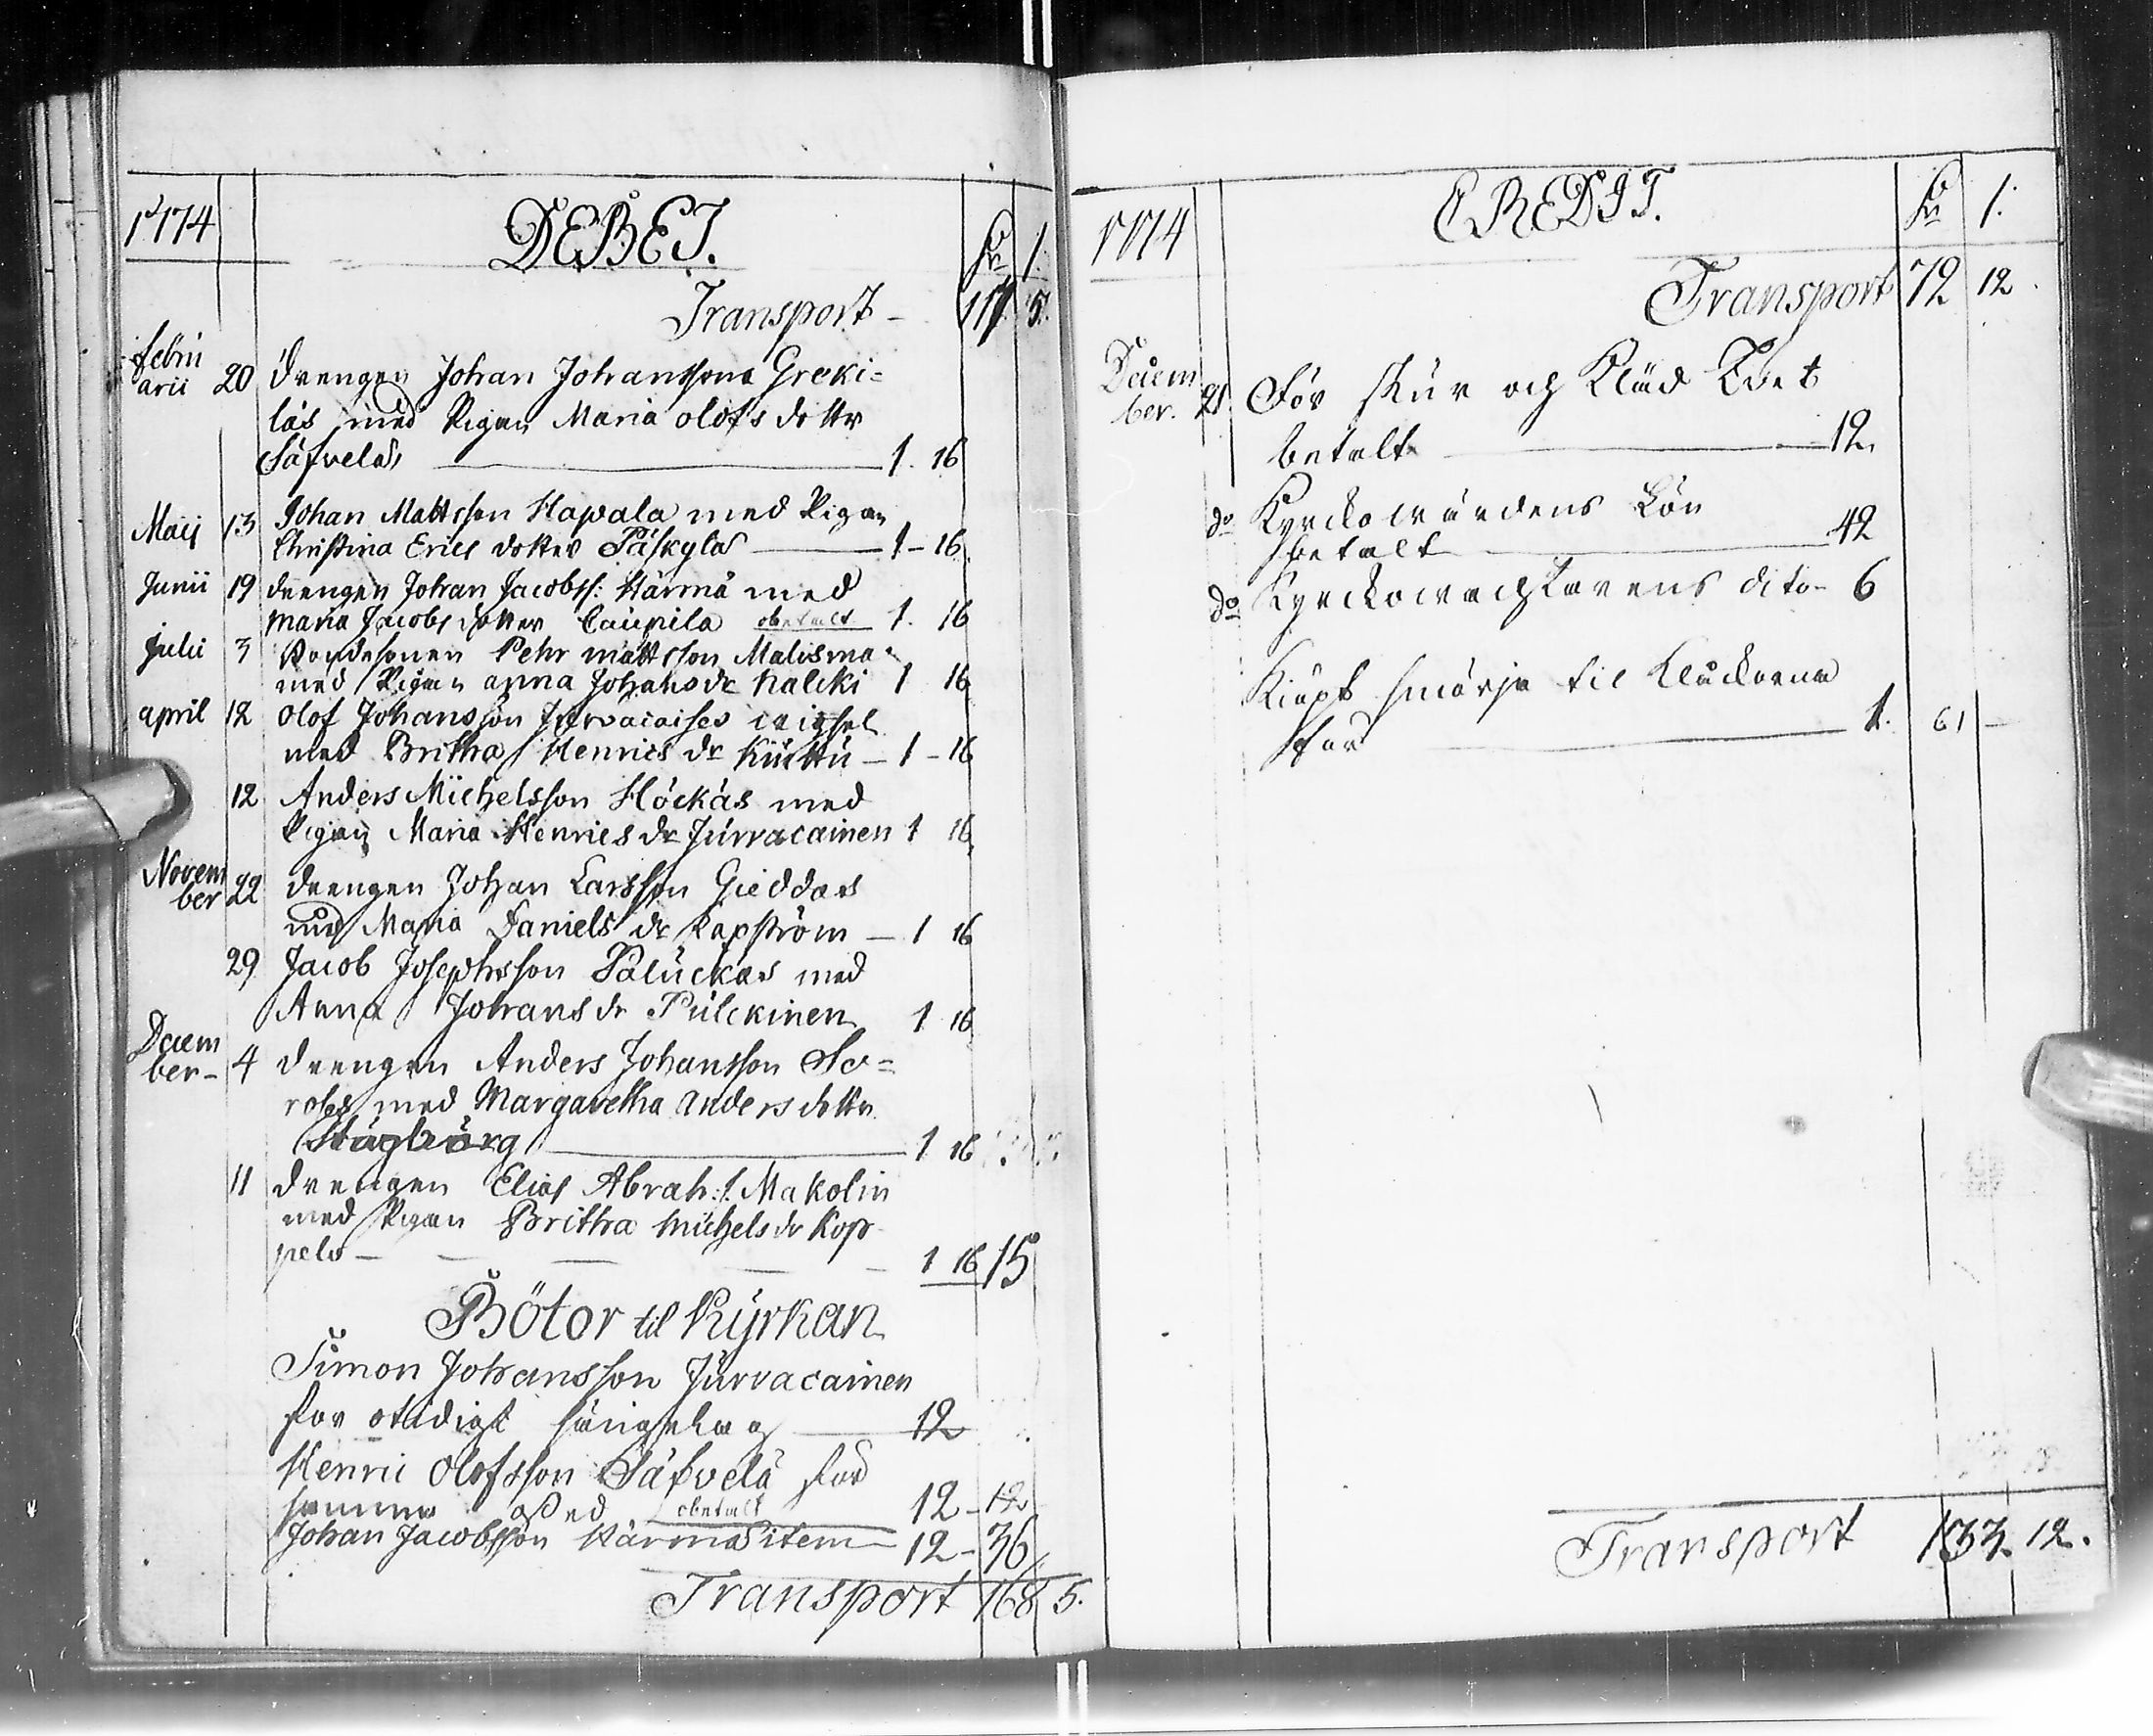 1774
DEBET.
Transport - 117 5.
Febru
arii 20 Drengen Johan Johanssons Greki=
läs med Pigan Maria olofs dotter
Säfvelä, 1. 16
Maij 13 Johan Mattsson Hapala med Pigan
Christina Erics dotter Päskylä 1-16
Junii 19 drengen Johan Jacobss: Härmä med
Maria Jacobs dotter Caupila obetalt 1. 16
Julii 3 Pehr mattsson Malisma
med Pigan anna Johans dr kalcki 1 16
april 12 Olof Johansson
med Britha Henrics dr Kuittu - 1-16
12 Anders Michelsson Höckäs med
Pigan Maria Henrics dr Jurvacainen 1 16
Novem
ber 22 drengen Johan Larsson Gieddas
med Maria Daniels dr Rapström - 1 16
29 Jacob Josephsson Paluckas med
Anna Johans dr Pulckinen 1 16
Decem
ber- 4 drengen Anders Johansson So=
rolas med Margaretha anders dotter
Stagbärg 1 16
11 drengen Elias Abrah: s. Makolin
med Pigan Britha Michels dr Kop
pelo - 1 16 15
Bötor til Kyrkan
Simon Johansson Jurvacainen
for otidigt sängelag 12
Henric Olofsson Säfvelä for
samma obetalt 12-12
Johan Jacobsson Härmä item 12-36
Transport 168 5.
1774
CREDIT.
Transport 72 12.
Decem
ber. 21. För skur och Kläd Tvet
betalt 12.
do Kyrckowärdens Lön
betalt 42
do Kyrckowachtarens dito- 6
Kiöpt smörja til Klåckorna
för 1. 61 -
Transport 133. 12.